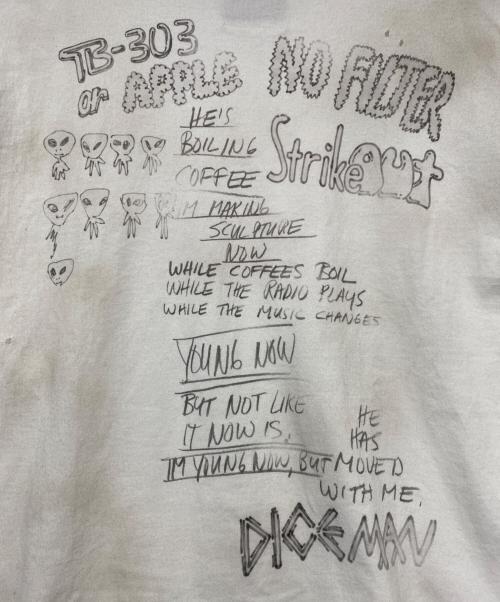 TB-303
or APPLE
NO FILTER
StrikeOut
HE'S
BOILING
COFFEE
I'M MAKING
SCULPTURE
NOW
WHILE COFFEES BOIL
WHILE THE RADIO PLAYS
WHILE THE MUSIC CHANGES
YOUNG NOW
BUT NOT LIKE
IT NOW IS.
IM YOUNG NOW, BUT
HE
HAS
MOVED
WITH ME.
DICEMAN